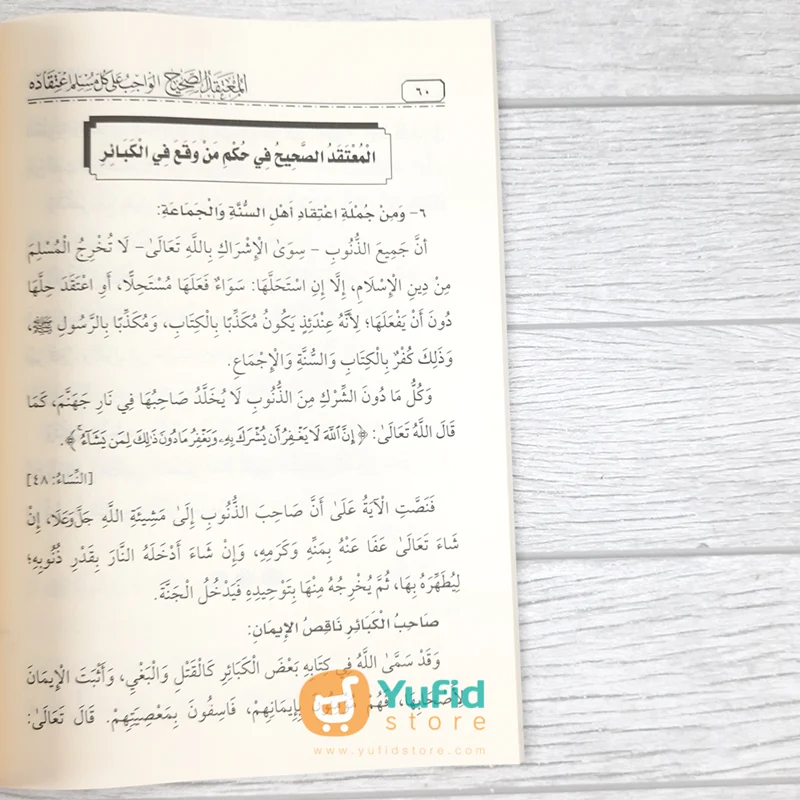 ٦٠
المعتقد الصحيح الواجب على كل مسلم اعتقاده
الْمُعْتَقَدُ الصَّحِيحُ فِي حُكْمِ مَنْ وَقَعَ فِي الْكَبَائِرِ
٦- وَمِنْ جُمْلَةِ اعْتِقَادِ أَهْلِ السُّنَّةِ وَالْجَمَاعَةِ:
أَنَّ جَمِيعَ الذُّنُوبِ - سِوَىٰ الْإِشْرَاكِ بِاللَّهِ تَعَالَىٰ- لَا تُخْرِجُ الْمُسْلِمَ
مِنْ دِينِ الْإِسْلَامِ، إِلَّا إِنِ اسْتَحَلَّهَا: سَوَاءٌ فَعَلَهَا مُسْتَحِلًّا، أَوِ اعْتَقَدَ حِلَّهَا
دُونَ أَنْ يَفْعَلَهَا؛ لِأَنَّهُ عِنْدَئِذٍ يَكُونُ مُكَذِّبًا بِالْكِتَابِ، وَمُكَذِّبًا بِالرَّسُولِ ﷺ،
وَذَلِكَ كُفْرٌ بِالْكِتَابِ وَالسُّنَّةِ وَالْإِجْمَاعِ.
وَكُلُّ مَا دُونَ الشِّرْكِ مِنَ الذُّنُوبِ لَا يُخَلَّدُ صَاحِبُهَا فِي نَارِ جَهَنَّمَ، كَمَا
قَالَ اللَّهُ تَعَالَىٰ: ﴿إِنَّ ٱللَّهَ لَا يَغْفِرُ أَن يُشْرَكَ بِهِۦ وَيَغْفِرُ مَا دُونَ ذَٰلِكَ لِمَن يَشَآءُ ۚ﴾.
[النِّسَاءُ: ٤٨]
فَنَصَّتِ الْآيَةُ عَلَىٰ أَنَّ صَاحِبَ الذُّنُوبِ إِلَىٰ مَشِيئَةِ اللَّهِ جَلَّ وَعَلَا، إِنْ
شَاءَ تَعَالَىٰ عَفَا عَنْهُ بِمَنِّهِ وَكَرَمِهِ، وَإِنْ شَاءَ أَدْخَلَهُ النَّارَ بِقَدْرِ ذُنُوبِهِ؛
لِيُطَهِّرَهُ بِهَا، ثُمَّ يُخْرِجُهُ مِنْهَا بِتَوْحِيدِهِ فَيَدْخُلُ الْجَنَّةَ.
صَاحِبُ الْكَبَائِرِ نَاقِصُ الْإِيمَانِ:
وَقَدْ سَمَّىٰ اللَّهُ فِي كِتَابِهِ بَعْضَ الْكَبَائِرِ كَالْقَتْلِ وَالْبَغْيِ، وَأَثْبَتَ الْإِيمَانَ
لِأَصْحَابِهَا، فَهُمْ مُؤْمِنُونَ بِإِيمَانِهِمْ، فَاسِقُونَ بِمَعْصِيَتِهِمْ. قَالَ تَعَالَىٰ:
Yufid
store
www.yufidstore.com